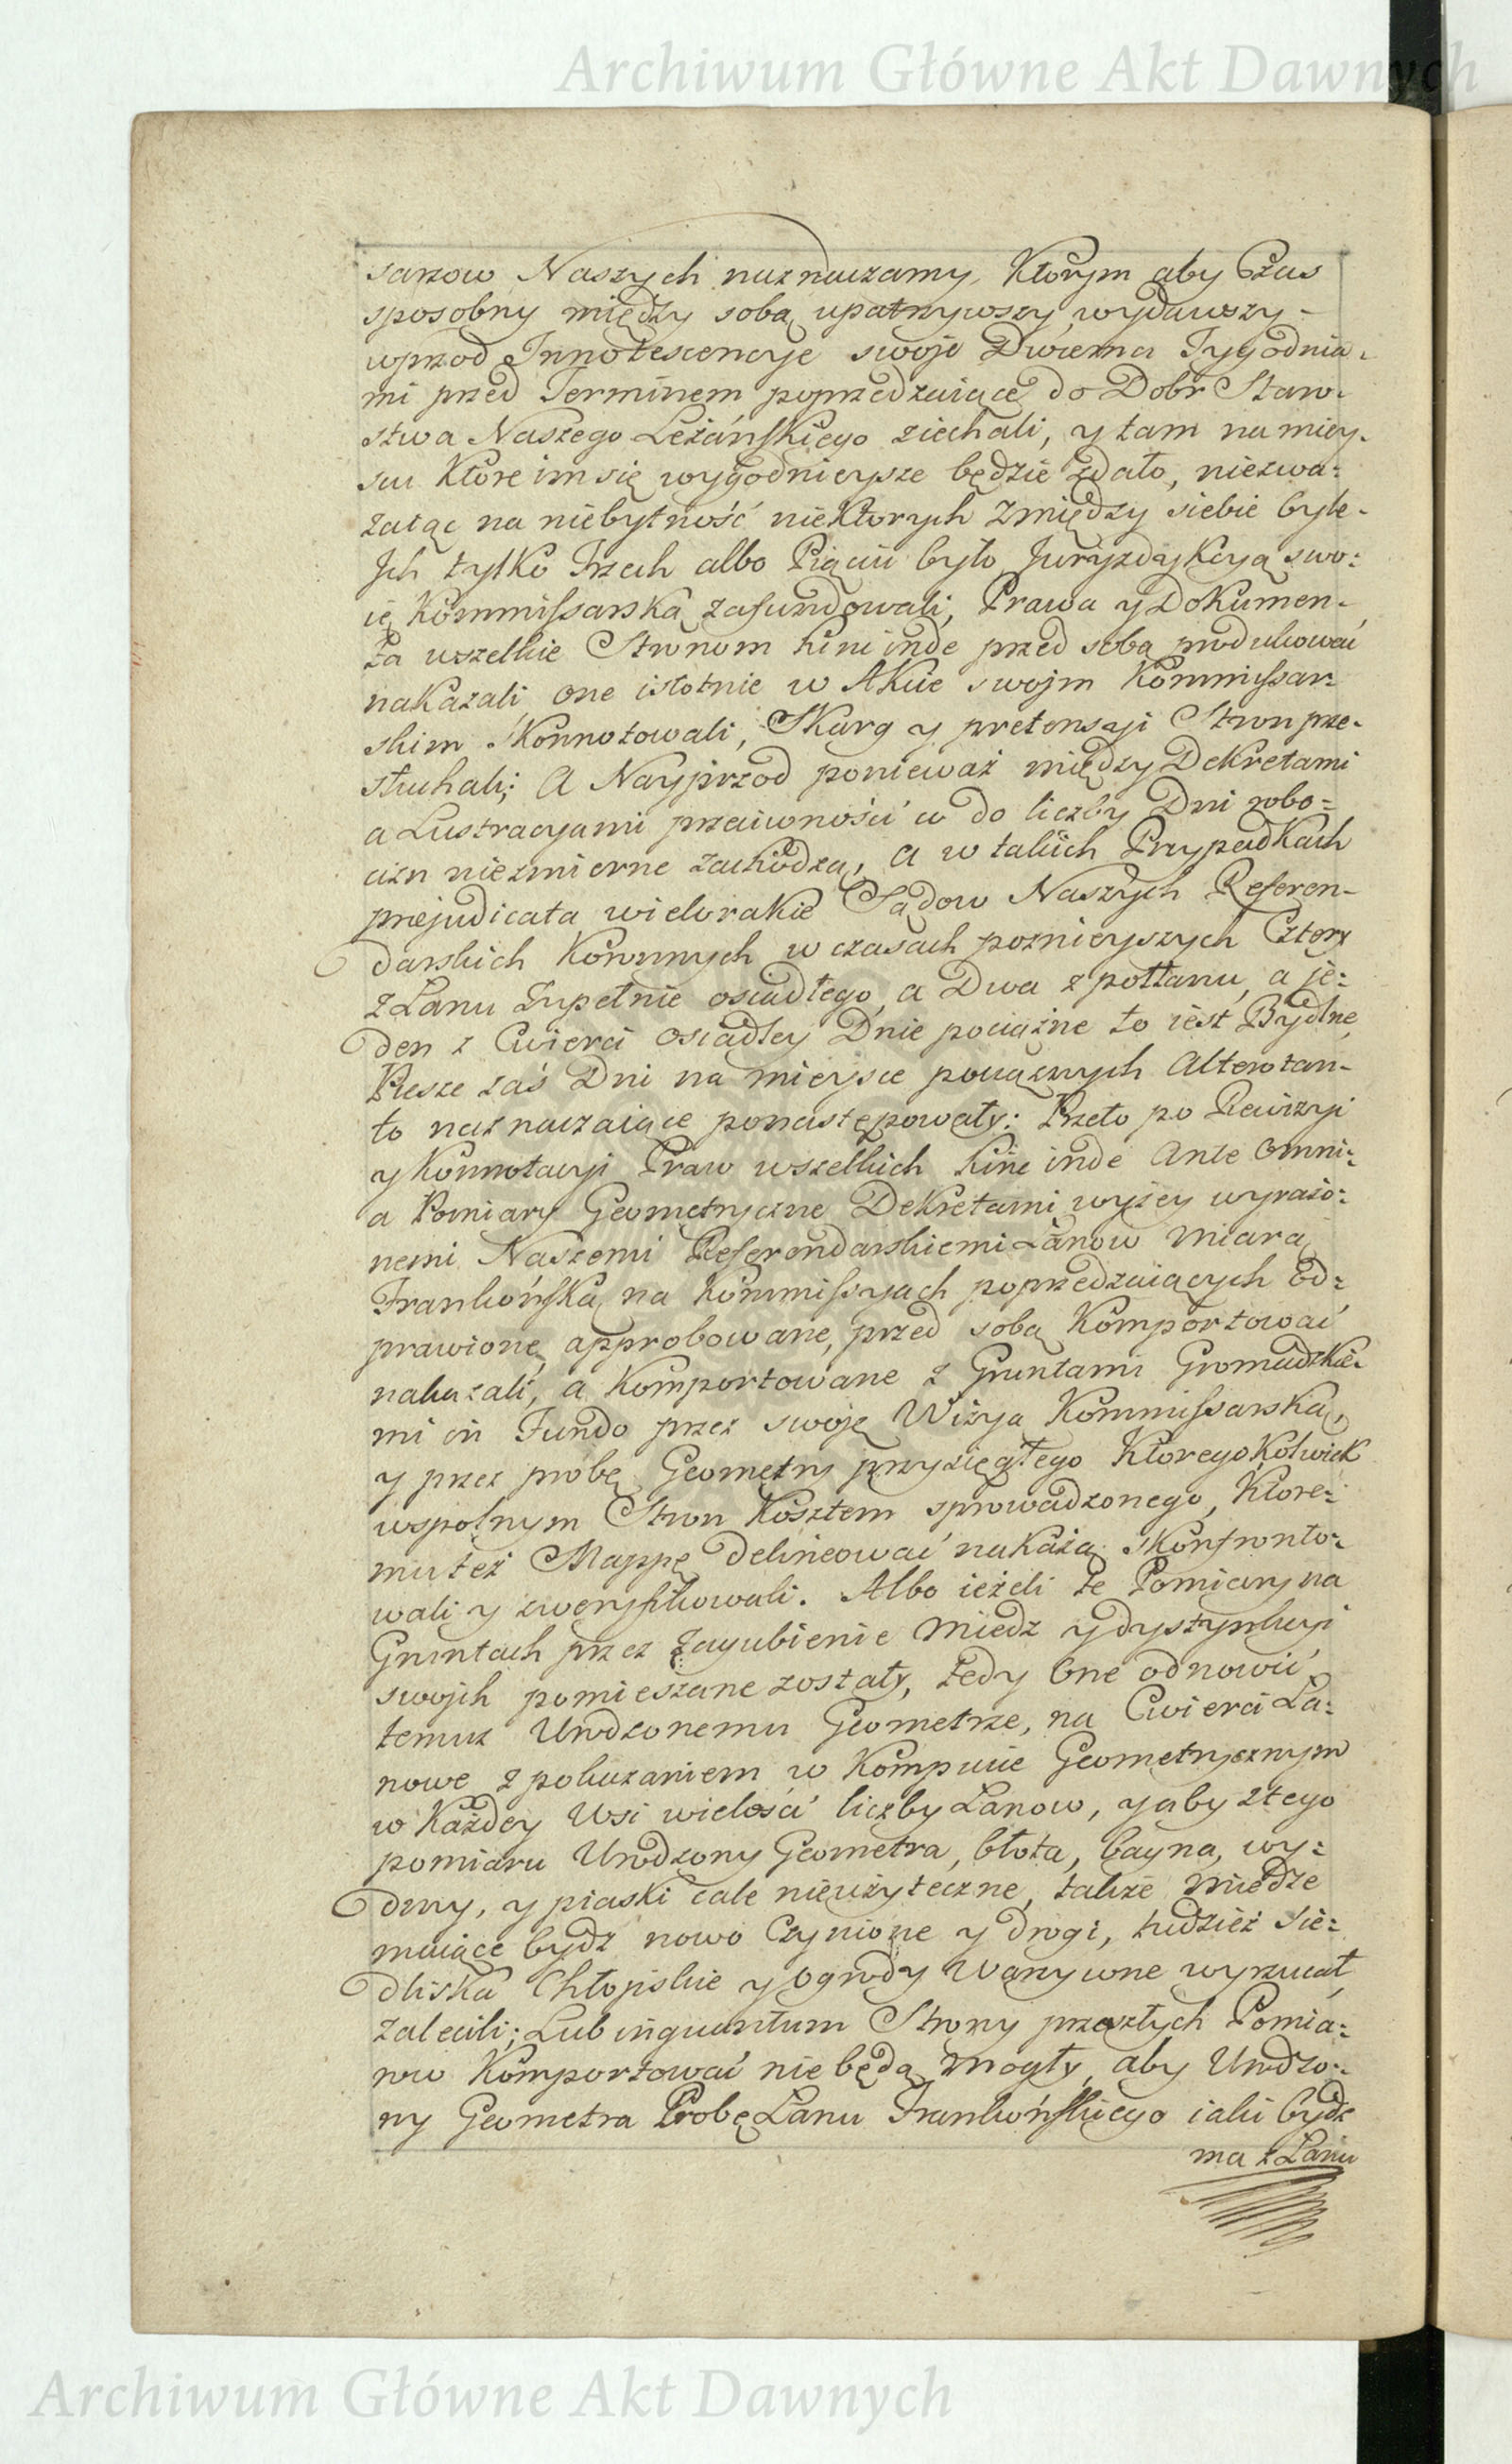 Archiwum Główne Akt Dawnych
sarzow Naszych naznaczamy, Którym aby Czas
sposobny między sobą upatrzywszy, wydawszy-
wprzod Innotescencyje swoje Dwiema Tygodnia-
mi przed Terminem poprzedzaiące do Dobr Staro-
stwa Naszego Leżańskiego ziechali, y tam na miey-
scu Które im się wygodnieysze będzie zdało, niezwa-
żaiąc na niebytność niektorych Zmiędzy siebie byle-
Ich tylko Trzech albo Pięciu było Juryzdykcyą swo-
ię Kommissarską zafundowali, Prawa y Dokumen-
ta wszelkie Stronom hinc inde przed sobą produkować
nakazali one istotnie w Akcie swojm Kommissar-
skim Skonnotowali, Skarg y pretensyi Stron prze-
słuchali; A Nayprzod ponieważ między Dekretami
a Lustracyami przeciwności co do liczby Dni robo-
cizn niezmierne zachodzą, a w takich Przypadkach
prejudicata wielorakie Sądow Naszych Referen-
darskich Koronnych w czasach poznieyszych Cztery
z Łanu Zupełnie osiadłego, a Dwa z połłanu, a je-
den z Cwierci osiadłey Dnie pociążne to iest Bydlne
Piesze zaś Dni na mieysce pociążnych Altero tan-
to naznaczaiące ponastępowały: Przeto po Rewizyi
y Konnotacyi Praw wszelkich hinc inde Ante omni-
a Pomiary Geometryczne Dekretami wyżey wyrażo-
nemi Naszemi Referendarskiemi Łanow Miarą
Frankońską na Kommissyach poprzedzaiących od-
prawione, approbowane, przed sobą Komportować
nakazali, a Komportowane z Gruntami Gromadzkie-
mi in Fundo przez swoję Wizya Kommissarską,
y przez probę Geometry przysięgłego Któregokolwiek
wspolnym Stron Kosztem sprowadzonego, Które-
mu też Mappę delineować nakażą skonfronto-
wali y zweryfikowali. Albo ieżeli te Pomiary na
Gruntach przez Zagubienie Miedz y dystynkcyi
swojch pomieszane zostały, tedy One odnowić
temuz Urodzonemu Geometrze, na Cwierci Ła-
nowe z pokazaniem w Kompucie Geometrycznym
w Każdey Wsi wielości liczby Łanow, y aby z tego
pomiaru Urodzony Geometra, błota, bayna, wy-
dmy, y piaski cale nieużyteczne, także Miedze
maiące bydz nowo Czynione y drogi, tudzież Sie-
dliska Chłopskie y Ogrody Warzywne wyrzucał,
zalecili; Lub inquantum Strony przeszłych Pomia-
row Komportować nie będą Mogły, aby Urodzo-
ny Geometra Probę Łanu Frankońskiego iaki bydz
ma z Łanu
Archiwum Główne Akt Dawnych